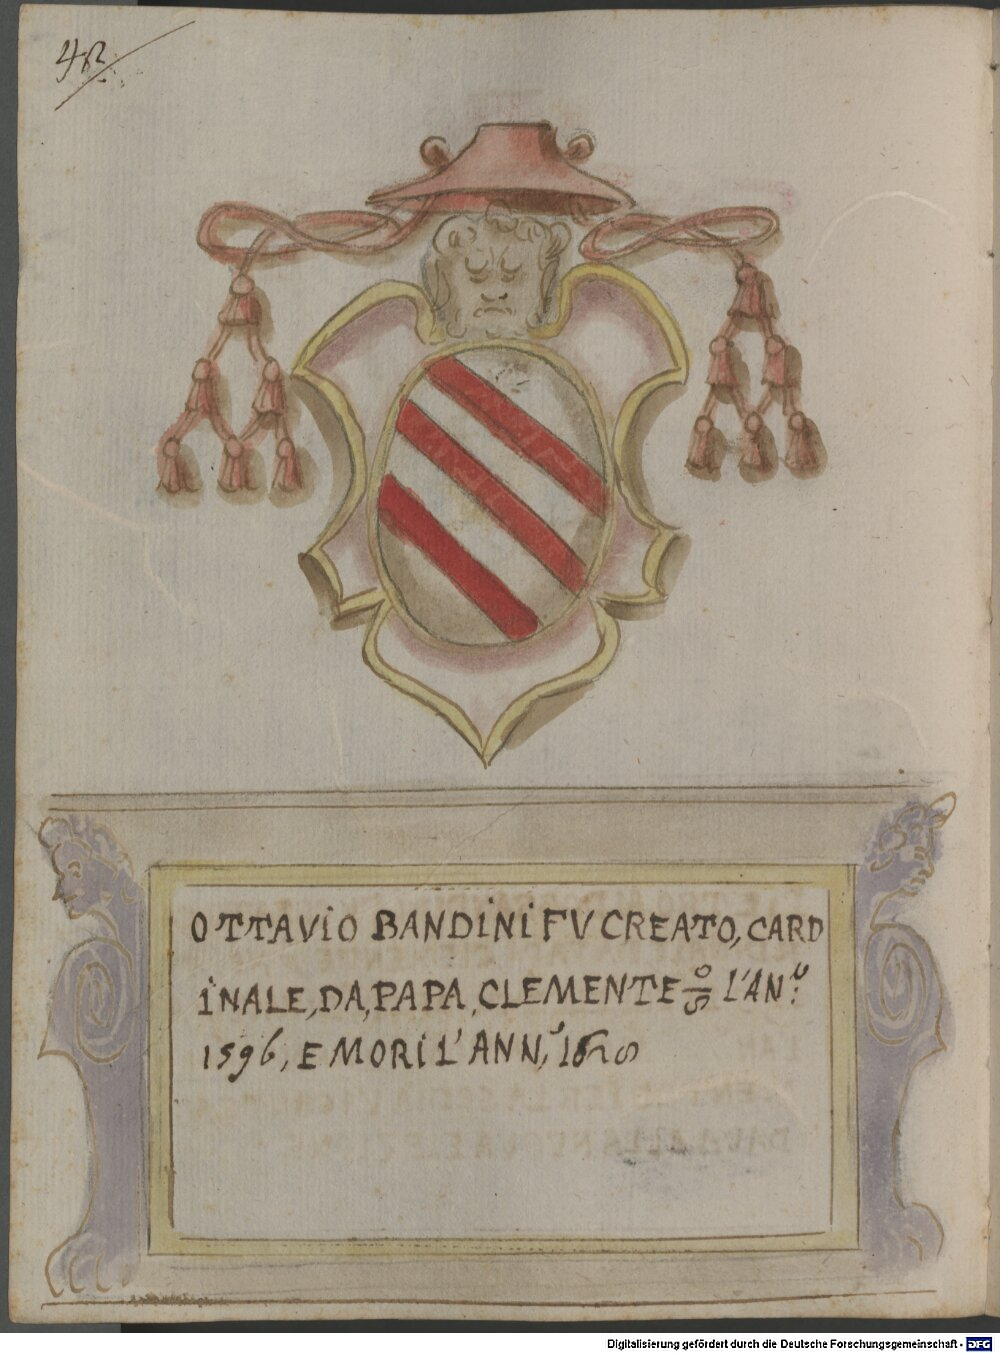 42
OTTAVIO BANDINI FV CREATO, CARD
INALE, DA, PAPA, CLEMENTE 8° L'AN.°
1596, E MORI L'ANN,° 1628
Digitalisierung gefördert durch die Deutsche Forschungsgemeinschaft - DFG